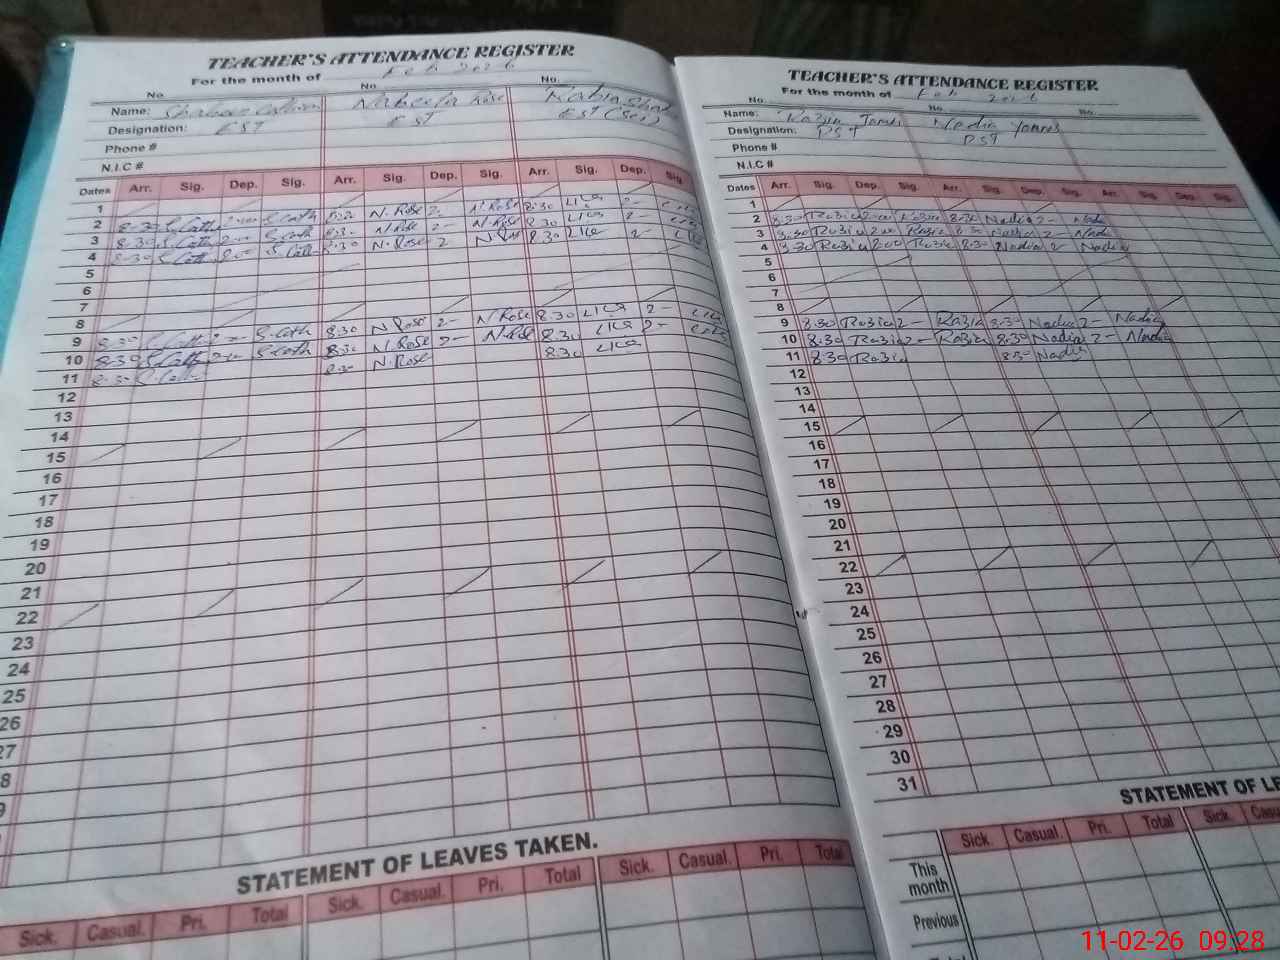 TEACHER'S ATTENDANCE REGISTER
For the month of Feb 2026
No. No. No.
Name: Nabeela Rose Rabia
Designation: EST EST EST (Sci)
Phone #
N.I.C #
Dates Arr. Sig. Dep. Sig. Arr. Sig. Dep. Sig. Arr. Sig. Dep. Sig.
1
2 8-30 S.Cath 2-00 S.Cath N.Rose 2- N.Rose 8-30 2-
3 8-30 S.Cath 2-00 S.Cath 8-30 N.Rose 2- N.Rose 8-30 2-
4 8-30 S.Cath S.Cath 8-30 N.Rose 2 N.Rose 8.30 2-
5
6
7
8
9 8-30 S.Cath S.Cath 8.30 N.Rose 2- N.Rose 8.30 2-
10 8-30 S.Cath S.Cath 8.30 N.Rose 2- N.Rose 8.30 2-
11 8-30 S.Cath 8-30 N.Rose 8.30
12
13
14
15
16
17
18
19
20
21
22
23
24
25
26
27
8
9
STATEMENT OF LEAVES TAKEN.
Sick. Casual. Pri. Total Sick. Casual. Pri. Total
TEACHER'S ATTENDANCE REGISTER
For the month of Feb 2026
No. No. No.
Name: Razia Nadia Younas
Designation: PST PST
Phone #
N.I.C #
Dates Arr. Sig. Dep. Sig. Arr. Sig. Dep. Sig. Arr. Sig. Dep. Sig.
1
2 8-30 Razia 2-00 Razia 8-30 Nadia 2- Nadia
3 8-30 Razia 2-00 Razia 8-30 Nadia 2- Nadia
4 8-30 Razia 2-00 Razia 8-30 Nadia 2- Nadia
5
6
7
8
9 8:30 Razia 2- Razia 8-30 Nadia 2- Nadia
10 8:30 Razia 2- Razia 8:30 Nadia 2- Nadia
11 8:30 Razia 8:30 Nadia
12
13
14
15
16
17
18
19
20
21
22
23
24
25
26
27
28
29
30
31
STATEMENT OF LE
Sick. Casual. Pri. Total Sick. Cas
This month
Previous
11-02-26 09:28